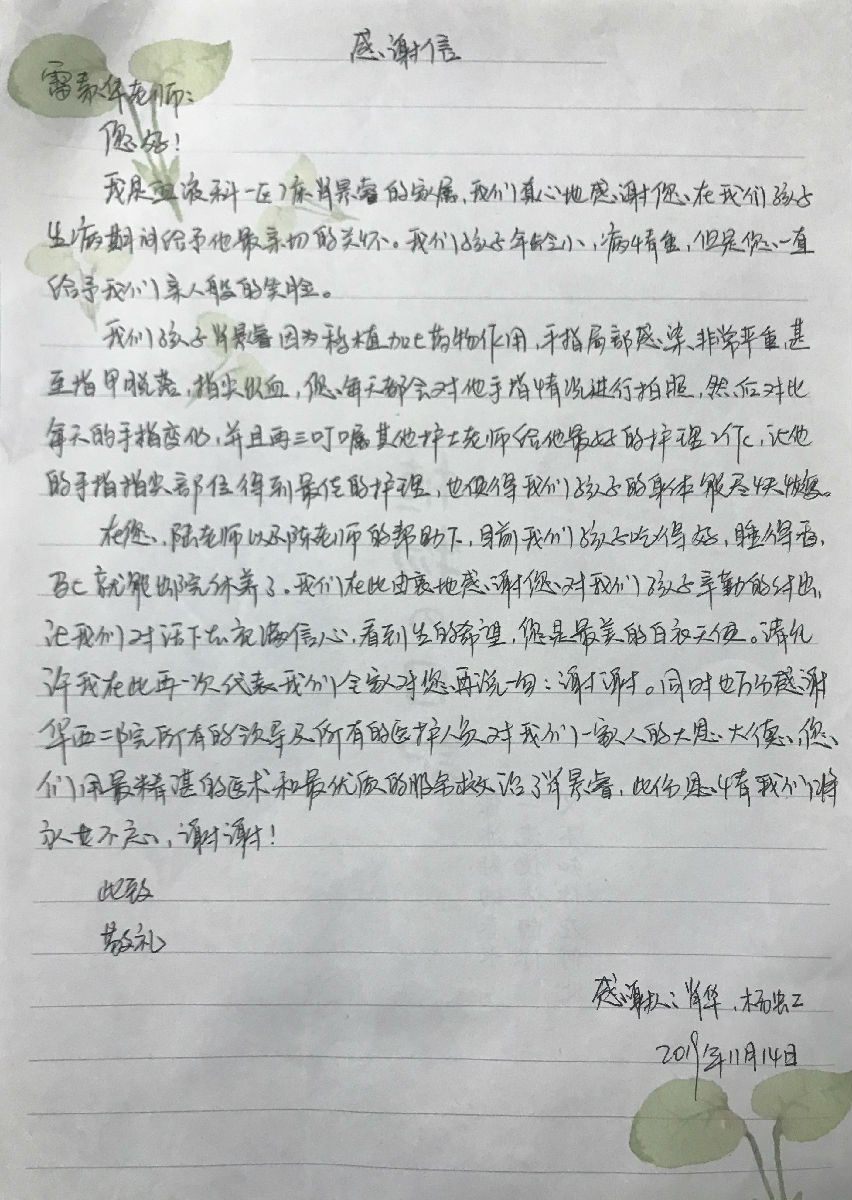 感谢信
雷家华老师：
您好！
我是血液科一区1床肖景睿的家属，我们真心地感谢您、在我们孩子
生病期间给予他最亲切的关怀。我们孩子年龄小、病情重，但是您一直
给予我们亲人般的笑脸。
我们孩子肖景睿因为移植加上药物作用，手指局部感染、非常严重，甚
至指甲脱落，指尖出血，您每天都会对他手指情况进行拍照，然后对比
每天的手指变化，并且再三叮嘱其他护士老师给他最好的护理工作，让他
的手指指尖部位得到最佳的护理，也使得我们孩子的身体能尽快恢复。
在您、陆老师以及陈老师的帮助下，目前我们孩子吃得好，睡得香，
马上就能出院休养了。我们在此由衷地感谢您对我们孩子辛勤的付出，
让我们对活下去充满信心，看到生的希望，您是最美的白衣天使。请允
许我在此再一次代表我们全家对您再说一句：谢谢。同时也万分感谢
华西二院所有的领导及所有的医护人员对我们一家人的大恩大德、您
们用最精湛的医术和最优质的服务救治了肖景睿，此份恩情我们将
永世不忘，谢谢！
此致
敬礼
感谢人：肖华、杨宏工
2019年11月14日